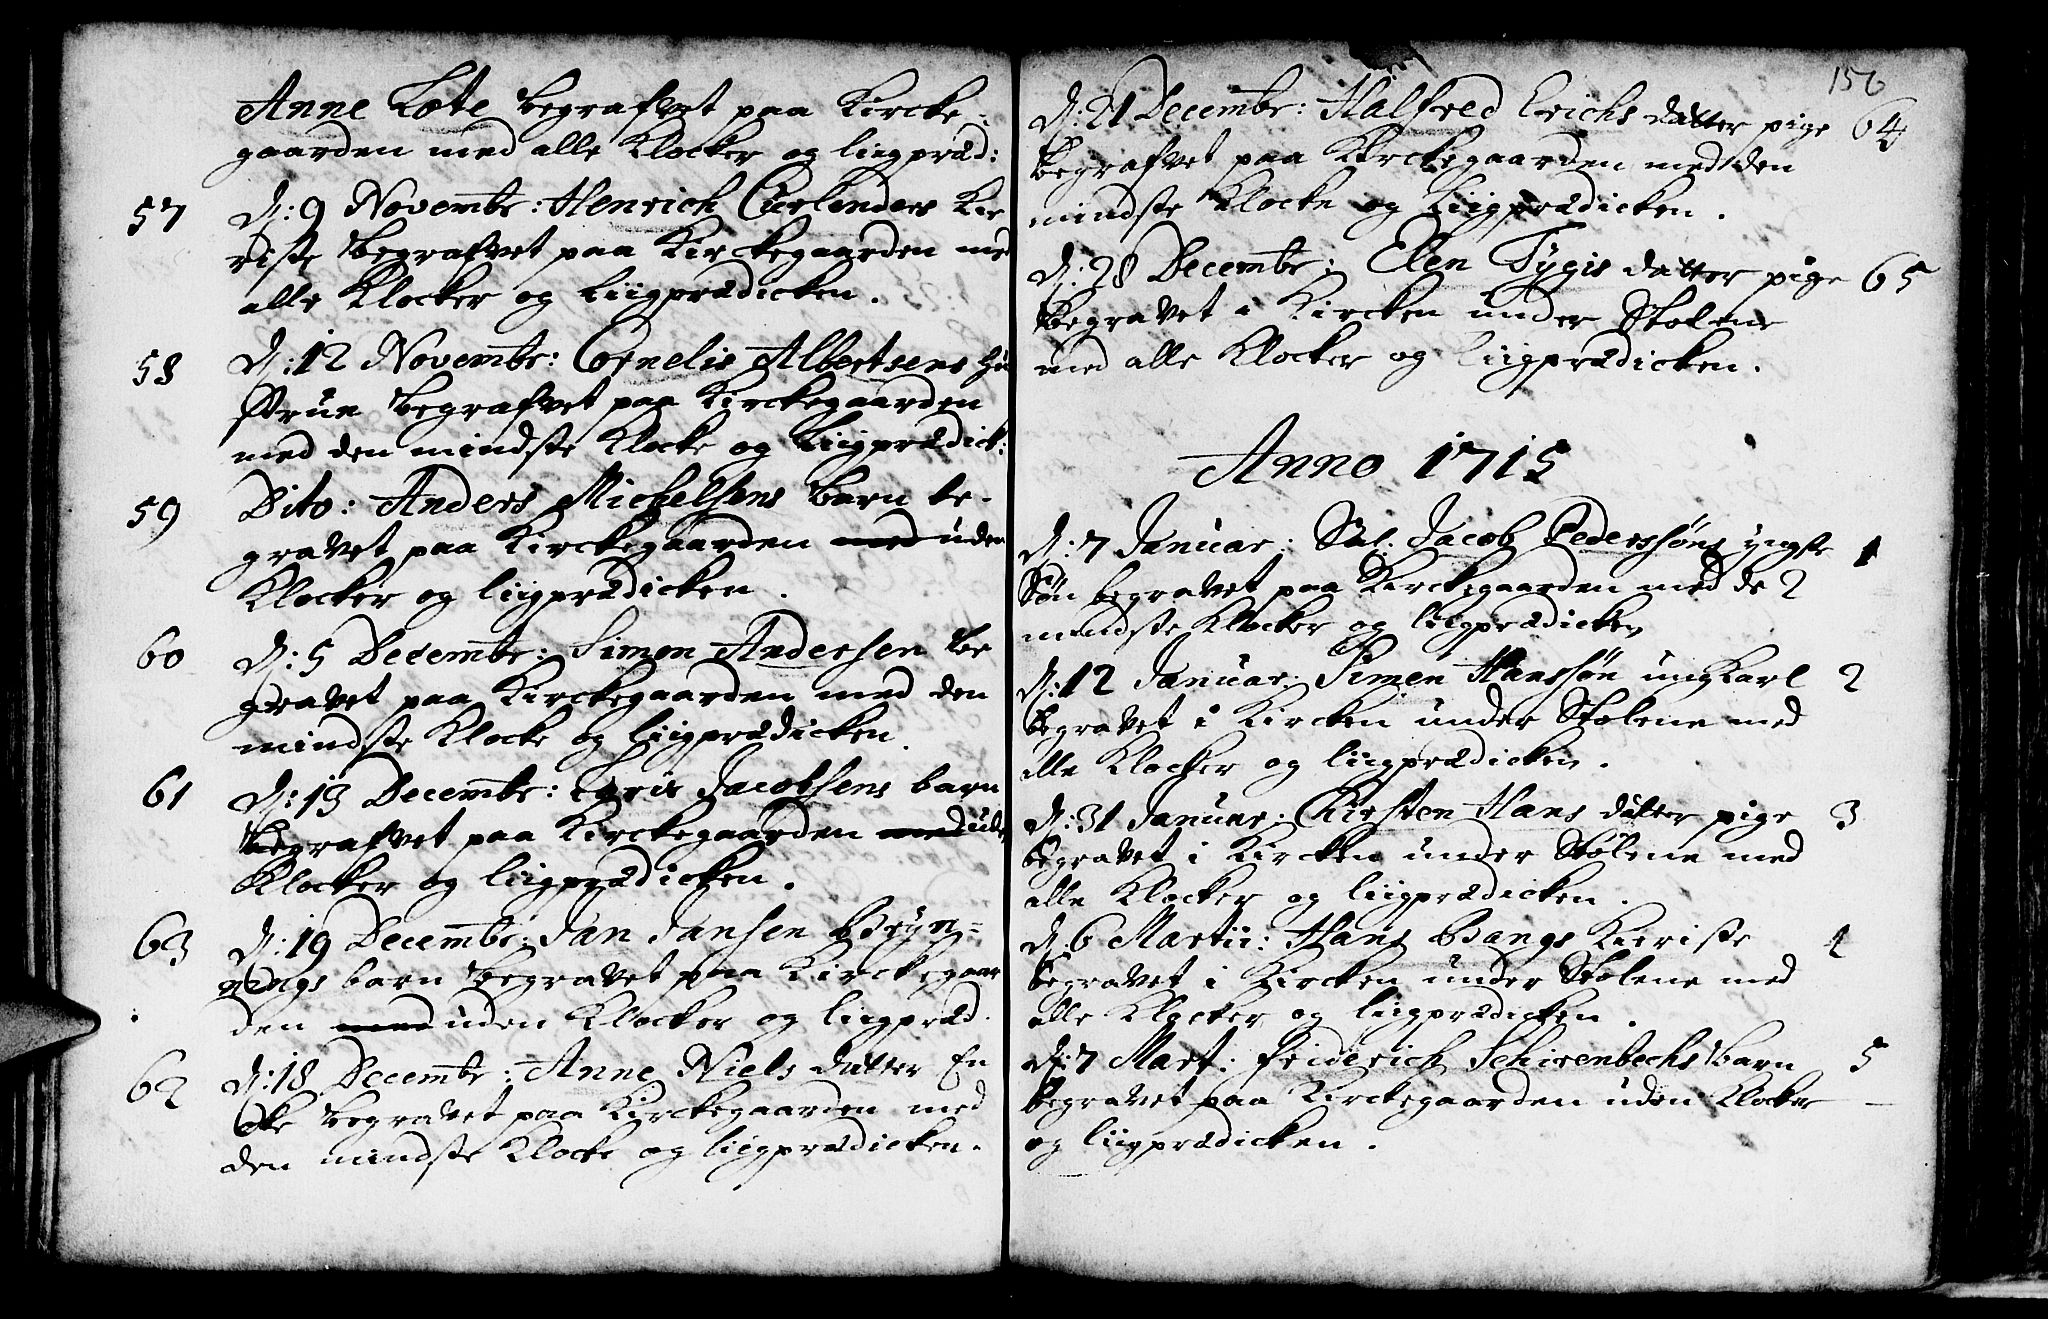 Anne Lote begrafvet paa Kircke-
gaarden med alle Klocker og liigpræd:
57 D: 9 Novembr: Henrich Curlenders Kie
riste begrafvet paa Kirckegaarden med
alle Klocker og Liigprædicken.
58 D: 12 Novembr: Cornelis Albertsens Hu
strue begrafvet paa Kirckegaarden
med den mindste Klocke og Liigprædick:
59 Dito: Anders Michelsens barn be-
gravet paa Kirckegaarden med uden
Klocker og liigprædicken.
60 D: 5 Decembr: Simon Andersen be
gravet paa Kirckegaarden med den
mindste Klocke og liigprædicken.
61 D: 13 Decembr: Joris Jacobsens barn
begrafvet paa Kirckegaarden med uden
Klocker og liigprædicken.
63 D: 19 Decembr: Jan Jansen Bryn=
nings barn begravet paa Kirckegaar
den med uden Klocker og liigpræd.
62 D: 18 Decembr: Anne Niels datter En
cke begravet paa Kirckegaarden med
den mindste Klocke og liigprædicken.
156
D: 21 Decembr: Halfred Erichs datter pige 64
begrafvet paa Kirckegaarden med den
mindste Klocke og Liigprædicken.
D: 28 Decembr: Elen Tygis datter pige 65
begravet i Kircken under Stolene
med alle Klocker og liigprædicken.
Anno 1715
D: 7 Januar: Sal: Jacob Pederssøns yngste 1
Søn begravet paa Kirckegaarden med de 2
mindste Klocker og liigprædicken
D: 12 Januar: Simen Hanssøn ung Karl 2
begravet i Kircken under Stolene med
alle Klocker og liigprædicken.
D: 31 Januar: Kirsten Hans datter pige 3
begravet i Kircken under Stolene med
alle Klocker og liigprædicken.
D: 6 Martii: Hans Bangs Kieriste 4
begravet i Kircken under Stolene med
alle Klocker og liigprædicken.
D: 7 Mart: Friderich Schirenbechs barn 5
begravet paa Kirckegaarden uden Klocker
og liigprædicken.